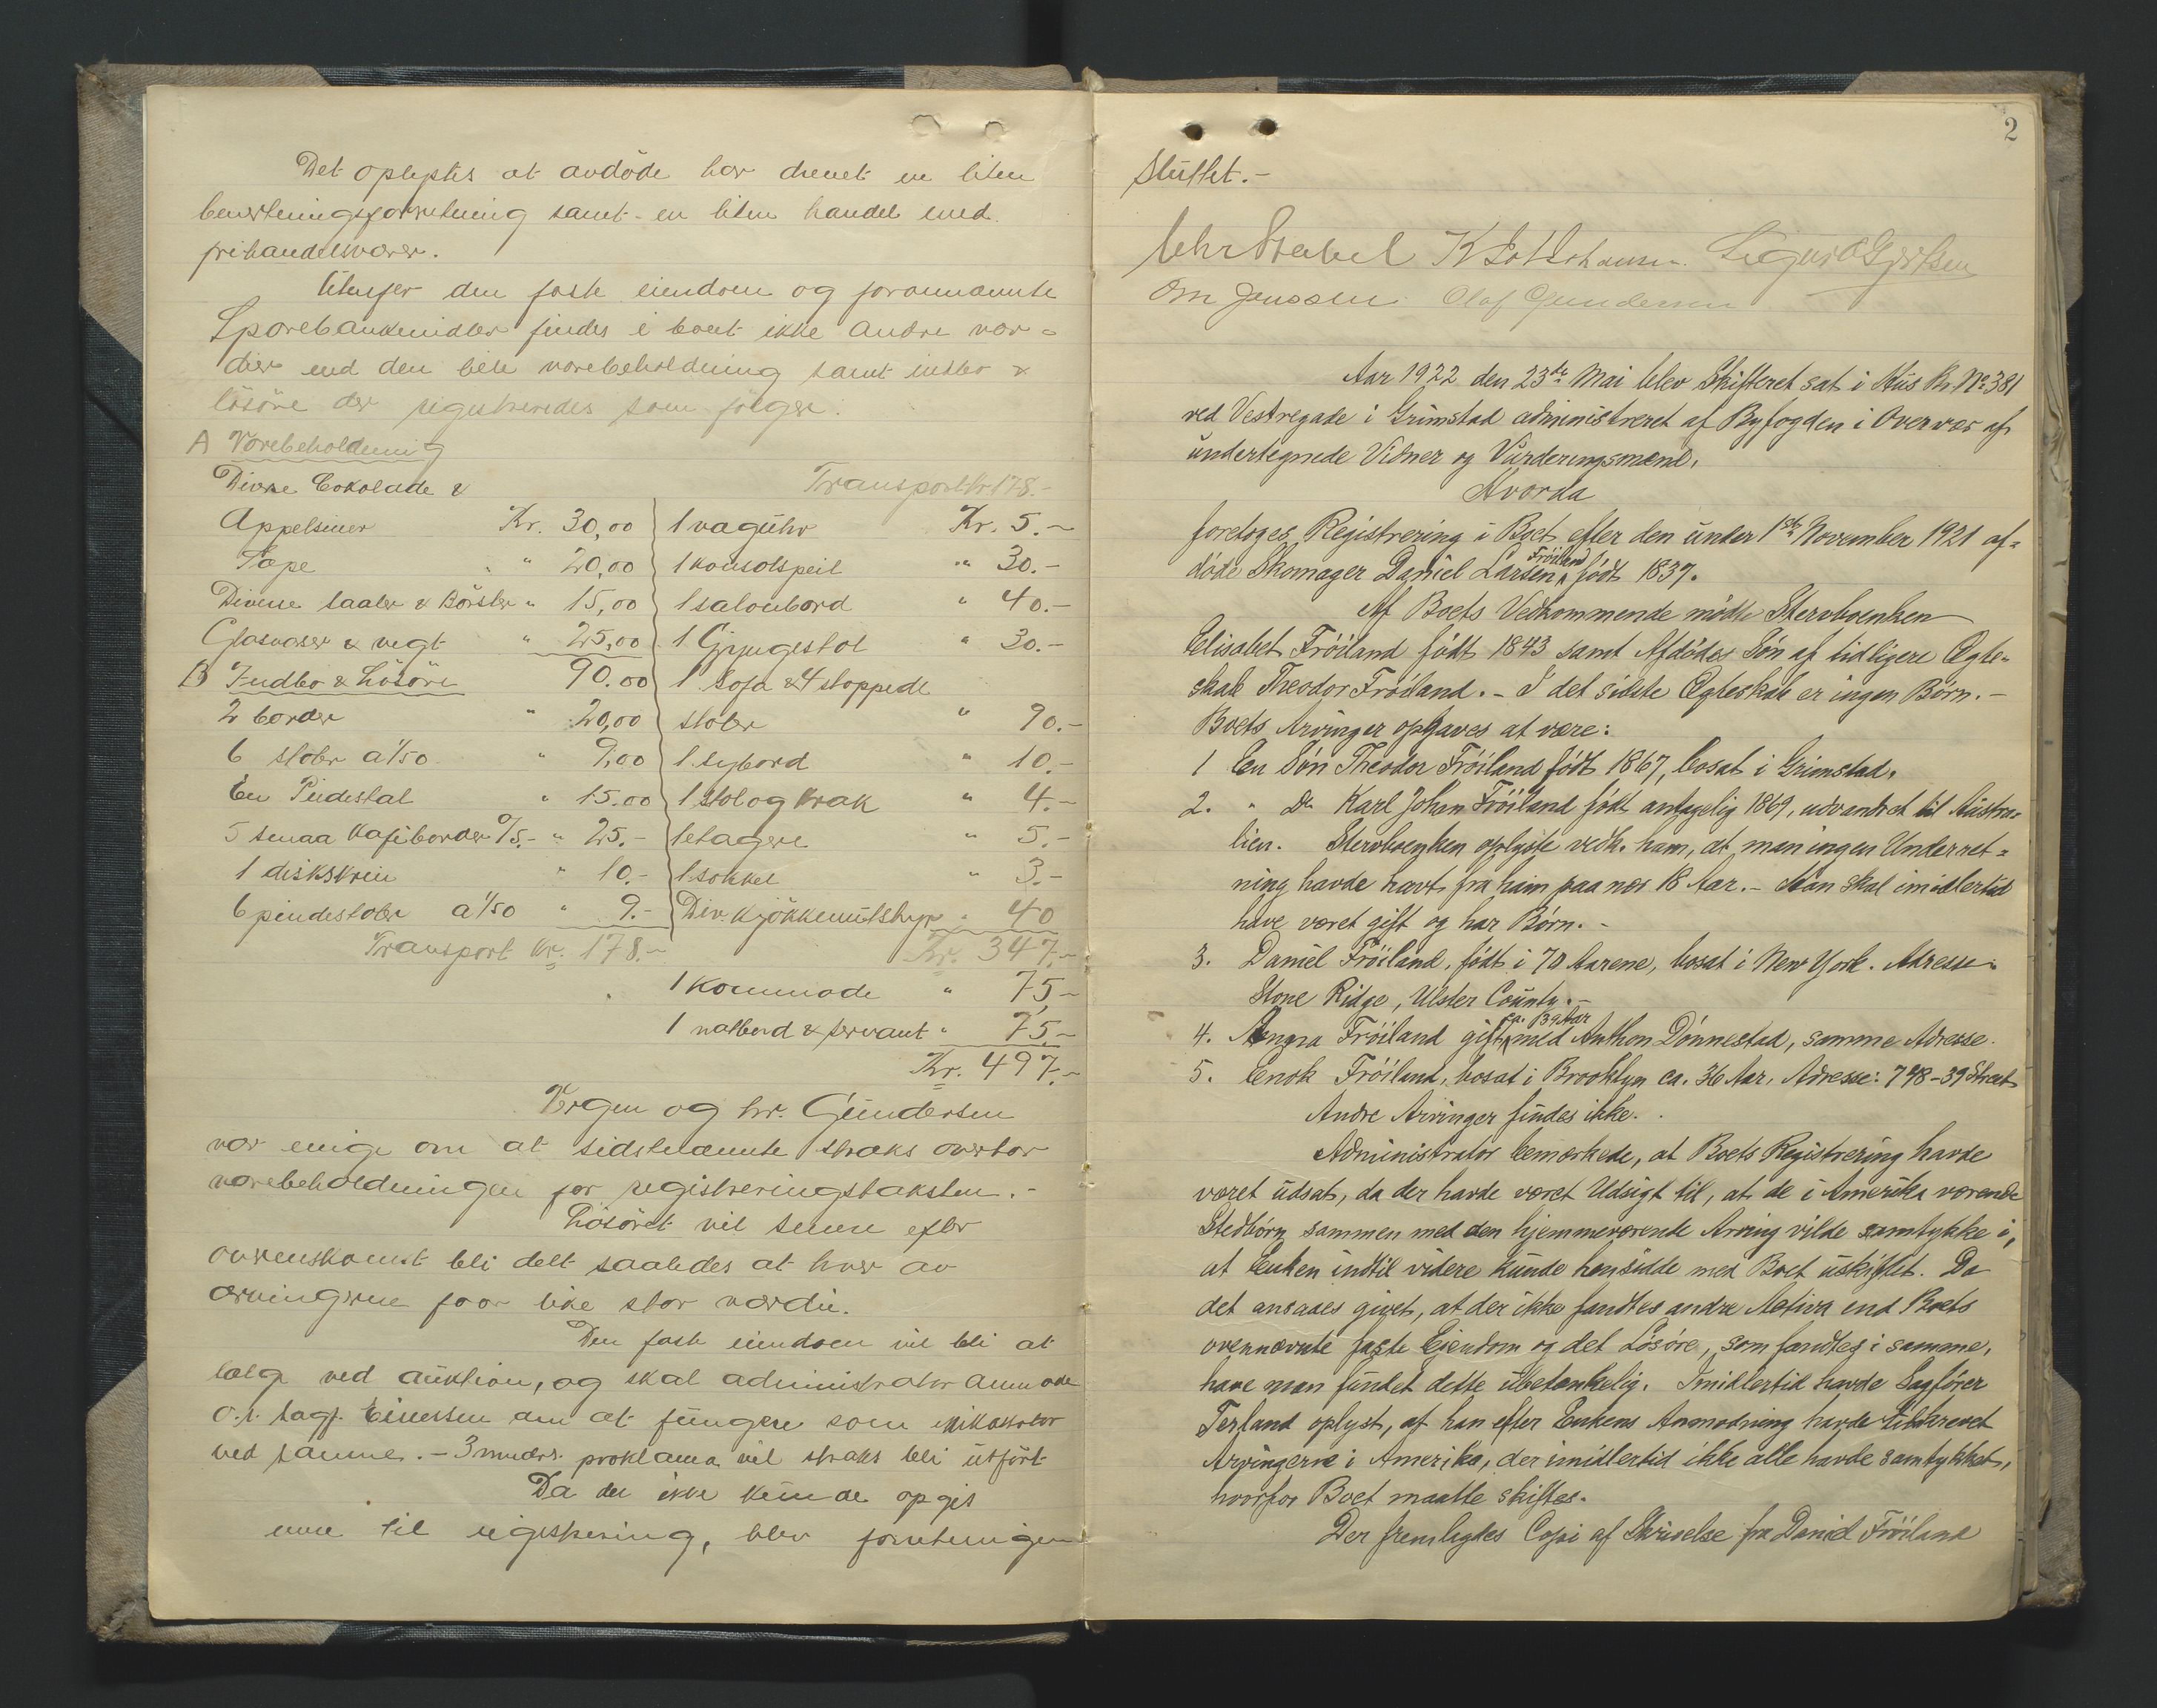 Det oplystes at avdöde har drevet en liten
bevertningsforretning samt en liten handel med
frihandelsvarer.
Utenfor den faste eiendom og forannævnte
Sparebankmidler findes i boet ikke andre vær-
dier end den lille varebeholdning samt indbo &
lösöre der registreredes som fölger.
A Varebeholdning
Divrse Cokolade &
Appelsiner Kr. 30,00
Sæpe " 20,00
Diverse saaler & Börster " 15,00
Glasvaser & vegt " 25,00
90.00
B Indbo & Lösöre
2 border " 20,00
6 stoler a 1/50 " 9,00
En Pidestal " 15.00
5 smaa Kafeborder a/5.- " 25.-
1 diskskrin " 10.-
6 pindestoler a 1/50 " 9.-
Transport kr. 178.-
Transport kr 178.-
1 væguhr Kr. 5.-
1 konsolspeil " 30.-
1 salonbord " 40.-
1 Gyngestol " 30.-
1 Sofa & 4 stoppede
stoler " 90.-
1 sybord " 10.-
1 stol og krak " 4.-
1 etagere " 5.-
1 sokkel " 3.-
Div. kjökkenutstyr " 40
Kr. 347.-
1 Kommode " 75,-
1 natbord & servant " 75.-
Kr. 497.-
Vergen og hr. Gundersen
var enige om at sidstnævnte straks overtar
varebeholdningen for registreringstaksten.-
Lösöret vil senere efter
overenskomst bli delt saaledes at hver av
arvingerne faar like stor værdi.
Den faste eiendom vil bli at
sælge ved auktion, og skal administrator anmode
o.r. sagf. om at fungere som inkassator
ved samme. - 3 mndrs. proklama vil straks bli utfört
Da der ikke kunde opgis
mere til registrering, blev forretningen
2
sluttet.-
Chr Stabel Sigurd Gjertsen
Om Jenssen Olaf Gundersen
Aar 1922 den 23de Mai blev Skifteret sat i Hus Br. No. 381
ved Vestregade i Grimstad administreret af Byfogden i Overvær af
undertegnede Vidner og Vurderingsmænd.
Hvorda
foretoges Registrering i Boet efter den under 1ste November 1921 af-
döde Skomager Daniel Larsen Fröiland födt 1837.
Af Boets Vedkommende mödte Stervboenken
Elisabet Fröiland födt 1843 samt Afdödes Sön af tidligere Ægte-
skab Theodor Fröiland. - I det sidste Ægteskab er ingen Börn. -
Boets Arvinger opgaves at være:
1 En Sön Theodor Fröiland födt 1867, bosat i Grimstad.
2. " Do Karl Johan Fröiland födt antagelig 1869, udvandret til Austra-
lien. Stervboenken oplyste vedk. ham, at man ingen Underret-
ning havde havt fra ham paa nær 18 Aar. - Han skal imidlertid
have været gift og har Börn. -
3. Daniel Fröiland, födt i 70 Aarene, bosat i New York. Adresse:
Stone Ridge, Ulster County. -
4. Anna Fröiland gift ca. 39 Aar med Anthon Dönnestad, samme Adresse.
5. Enok Fröiland, bosat i Brooklyn ca. 36 Aar, Adresse: 748-39 Street
Andre Arvinger findes ikke.
Administrator bemærkede, at Boets Registrering havde
været udsat, da der havde været Udsigt til, at de i Amerika værende
Stedbörn sammen med den hjemmeværende Arving vilde samtykke i,
at Enken indtil videre kunde hensidde med Boet uskiftet. Da
det ansaaes givet, at der ikke fandtes andre Aktiva end Boets
ovennævnte faste Eiendom og det Lösöre, som fandtes i samme,
have man fundet dette ubetænkelig. Imidlertid havde Sagförer
Terland oplyst, at han efter Enkens Anmodning havde tilskrevet
Arvingerne i Amerika, der imidlertid ikke alle havde samtykket,
hvorfor Boet maatte skiftes.
Der fremlagdes Copi af Skrivelse fra Daniel Fröiland